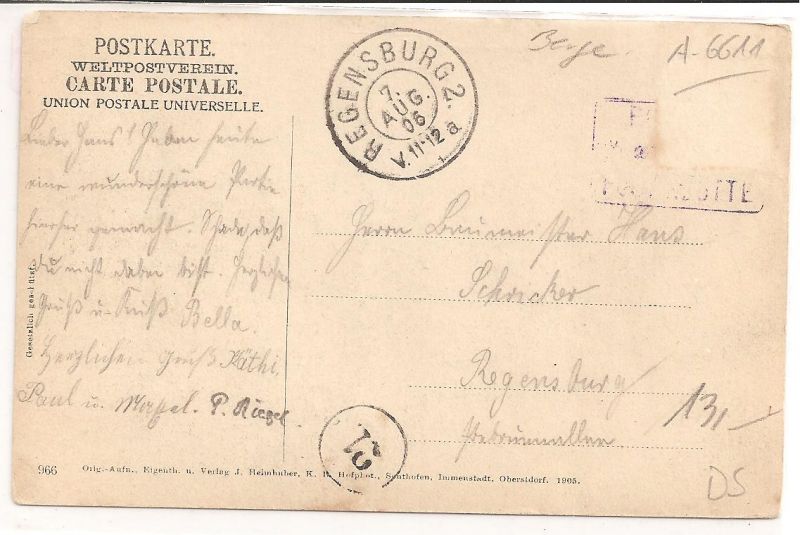 POSTKARTE.
WELTPOSTVEREIN.
CARTE POSTALE.
UNION POSTALE UNIVERSELLE.
REGENSBURG 2.
7.
AUG.
06
V. 11-12 a.
Berge
A-6611
Lieber Hans! Haben heute
eine wunderschöne Partie
hierher gemacht. Schade, daß
Du nicht dabei bist. Herzlichen
Gruß u. Kuß Bella.
Herzlichen Gruß Käthi,
Paul u. P. Riegel.
Herrn Baumeister Hans
Schricker
Regensburg
13,-
DS
Gesetzlich geschützt.
966 Orig.-Aufn., Eigenth. u. Verlag J. Heimhuber, K. B. Hofphot., Sonthofen, Immenstadt, Oberstdorf. 1905.